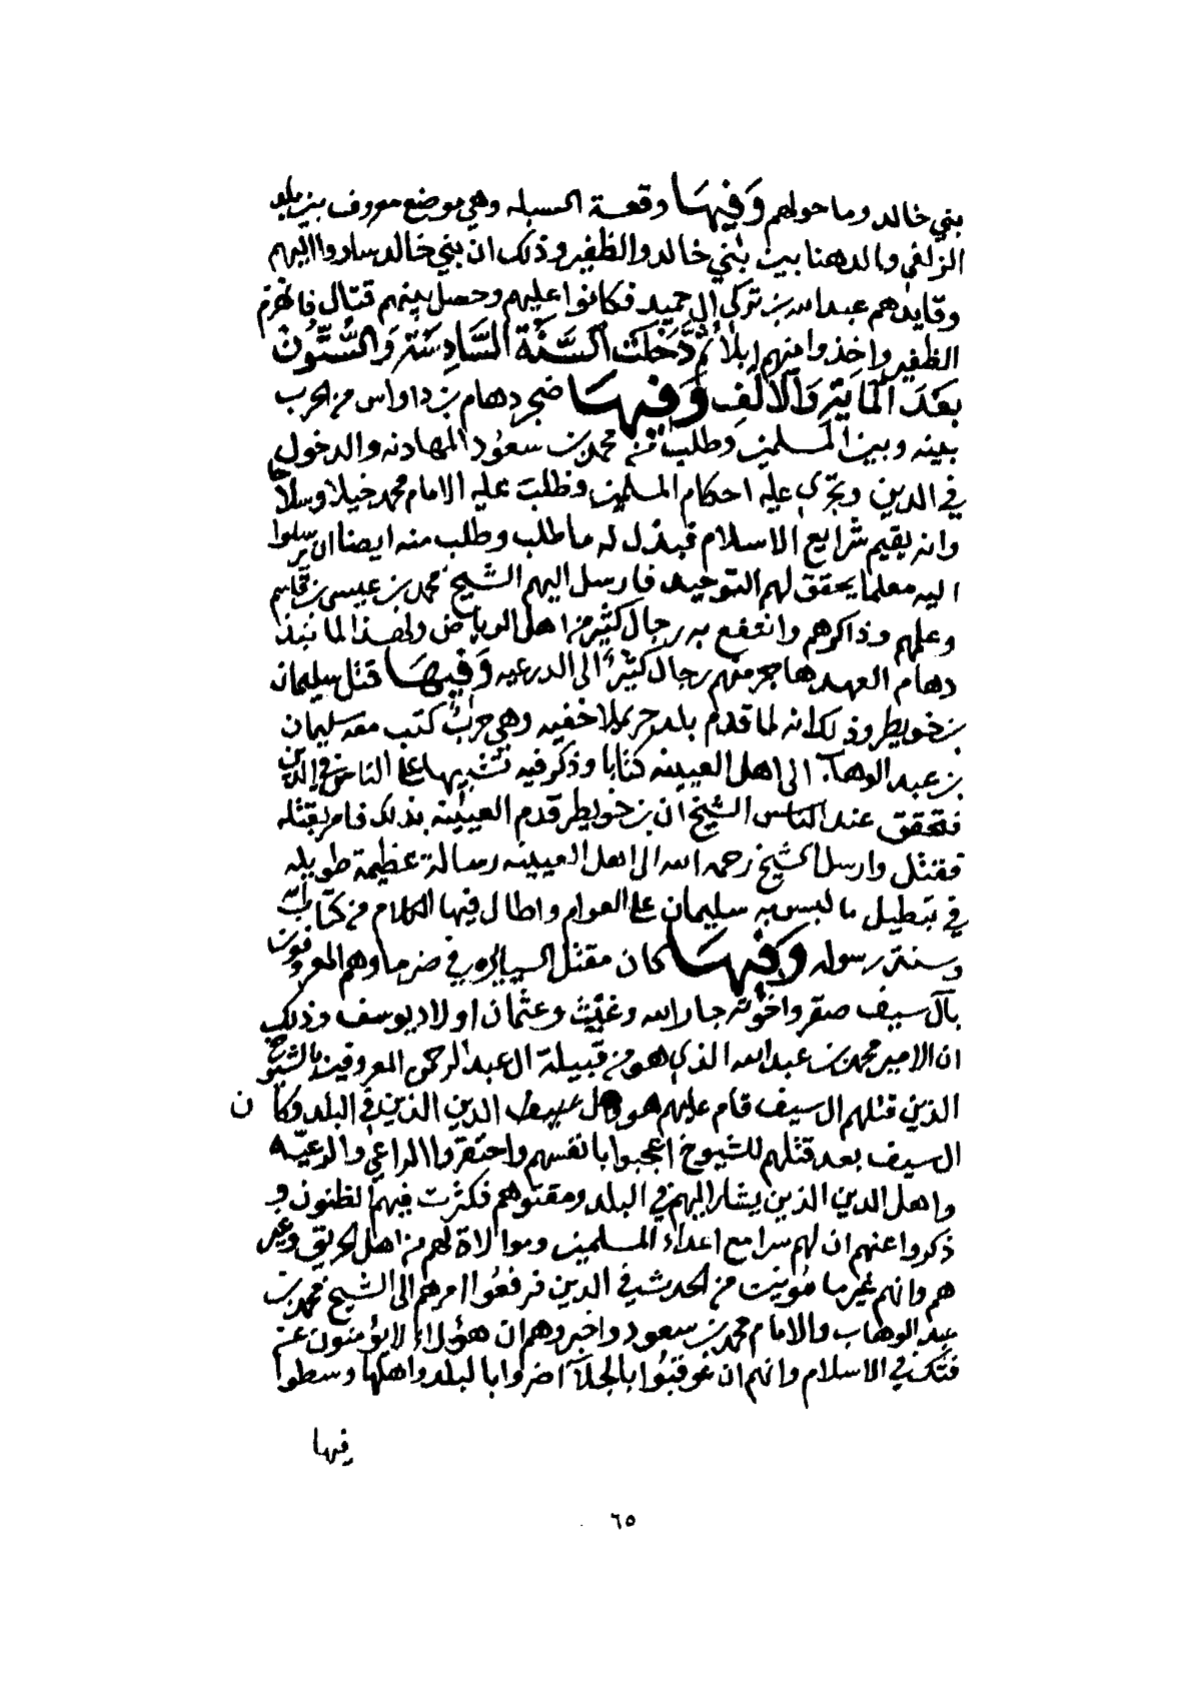 بني خالد وما حولهم وَفِيهَا وقعة السبله وهي موضع معروف بين بلد
الزلفي والدهنا بين بني خالد والظفير وذلك ان بني خالد ساروا اليهم
وقايدهم عبدالله بن تركي ال حميد فكانوا عليهم وحصل بينهم قتال فانهزم
الظفير واخذوا منهم ابلا ثُمَّ دَخَلَت السَّنَة السَّادِسَة وَالسُّتُّونَ
بَعْدَ المَايَة وَالألِف وَفِيهَا ضجر دهام بن داواس من الحرب
بينه وبين المسلمين وطلب من محمد بن سعود المهادنه والدخول
في الدين وتجري عليه احكام المسلمين وطلب عليه الامام محمد خيلا وسلاحا
وانه يقيم شرايع الاسلام فبذل له ما طلب وطلب منه ايضا ان يرسلوا
اليه معلما يحقق لهم التوحيد فارسل اليهم الشيخ محمد بن عيسى بن قاسم
وعلمهم وذاكرهم وانتفع به رجال كثير من اهل الرياض ولهذا لما نبذ
دهام العهد هاجر منهم رجال كثيرٌ الى الدرعيه وَفِيهَا قتل سليمان
بن خويطر وذلك انه لما قدم بلد حريملا خفيه وهي حربٌ كتب معه سليمان
بن عبد الوهاب الى اهل العيينه كتابا وذكر فيه تشبيها على الناس في الدين
فتحقق عند الناس الشيخ ان بن خويطر قدم العيينه بذلك فامر بقتله
فقتل وارسل الشيخ رحمه الله الى اهل العيينه رسالة عظيمة طويله
في تبطيل ما لبس به سليمان على العوام واطال فيها الكلام من كتاب الله
وسنة رسوله وَفِيهَا كان مقتل السيايره في ضرما وهم المعروفون
بآل سيف صقر واخوته جار الله وغيّث وعثمان اولاد يوسف وذلك
ان الامير محمد بن عبدالله الذي هو من قبيلة ال عبدالرحمن المعروفين بالشيوخ
الذين قتلهم ال سيف قام عليهم هو وكل الدين الذين في البلد وكان
ال سيف بعد قتلهم للشيوخ اعجبوا بانفسهم واحتقروا الراعي والرعيّه
واهل الدين الذين يشار اليهم في البلد ومقتوهم فكثرت فيهم الظنون و
ذكروا عنهم ان لهم سرا مع اعداء المسلمين وموالاة لهم من اهل الحريق وغير
هم وانهم غير من الحدث في الدين فرفعوا امرهم الى الشيخ محمد بن
عبد الوهاب والامام محمد بن سعود واخبروهم ان هؤلاء لا يؤمنون عن
فتك في الاسلام وانهم ان عوقبُوا بالجلآ اضروا بالبلد واهلها وسطوا
فيها
٦٥